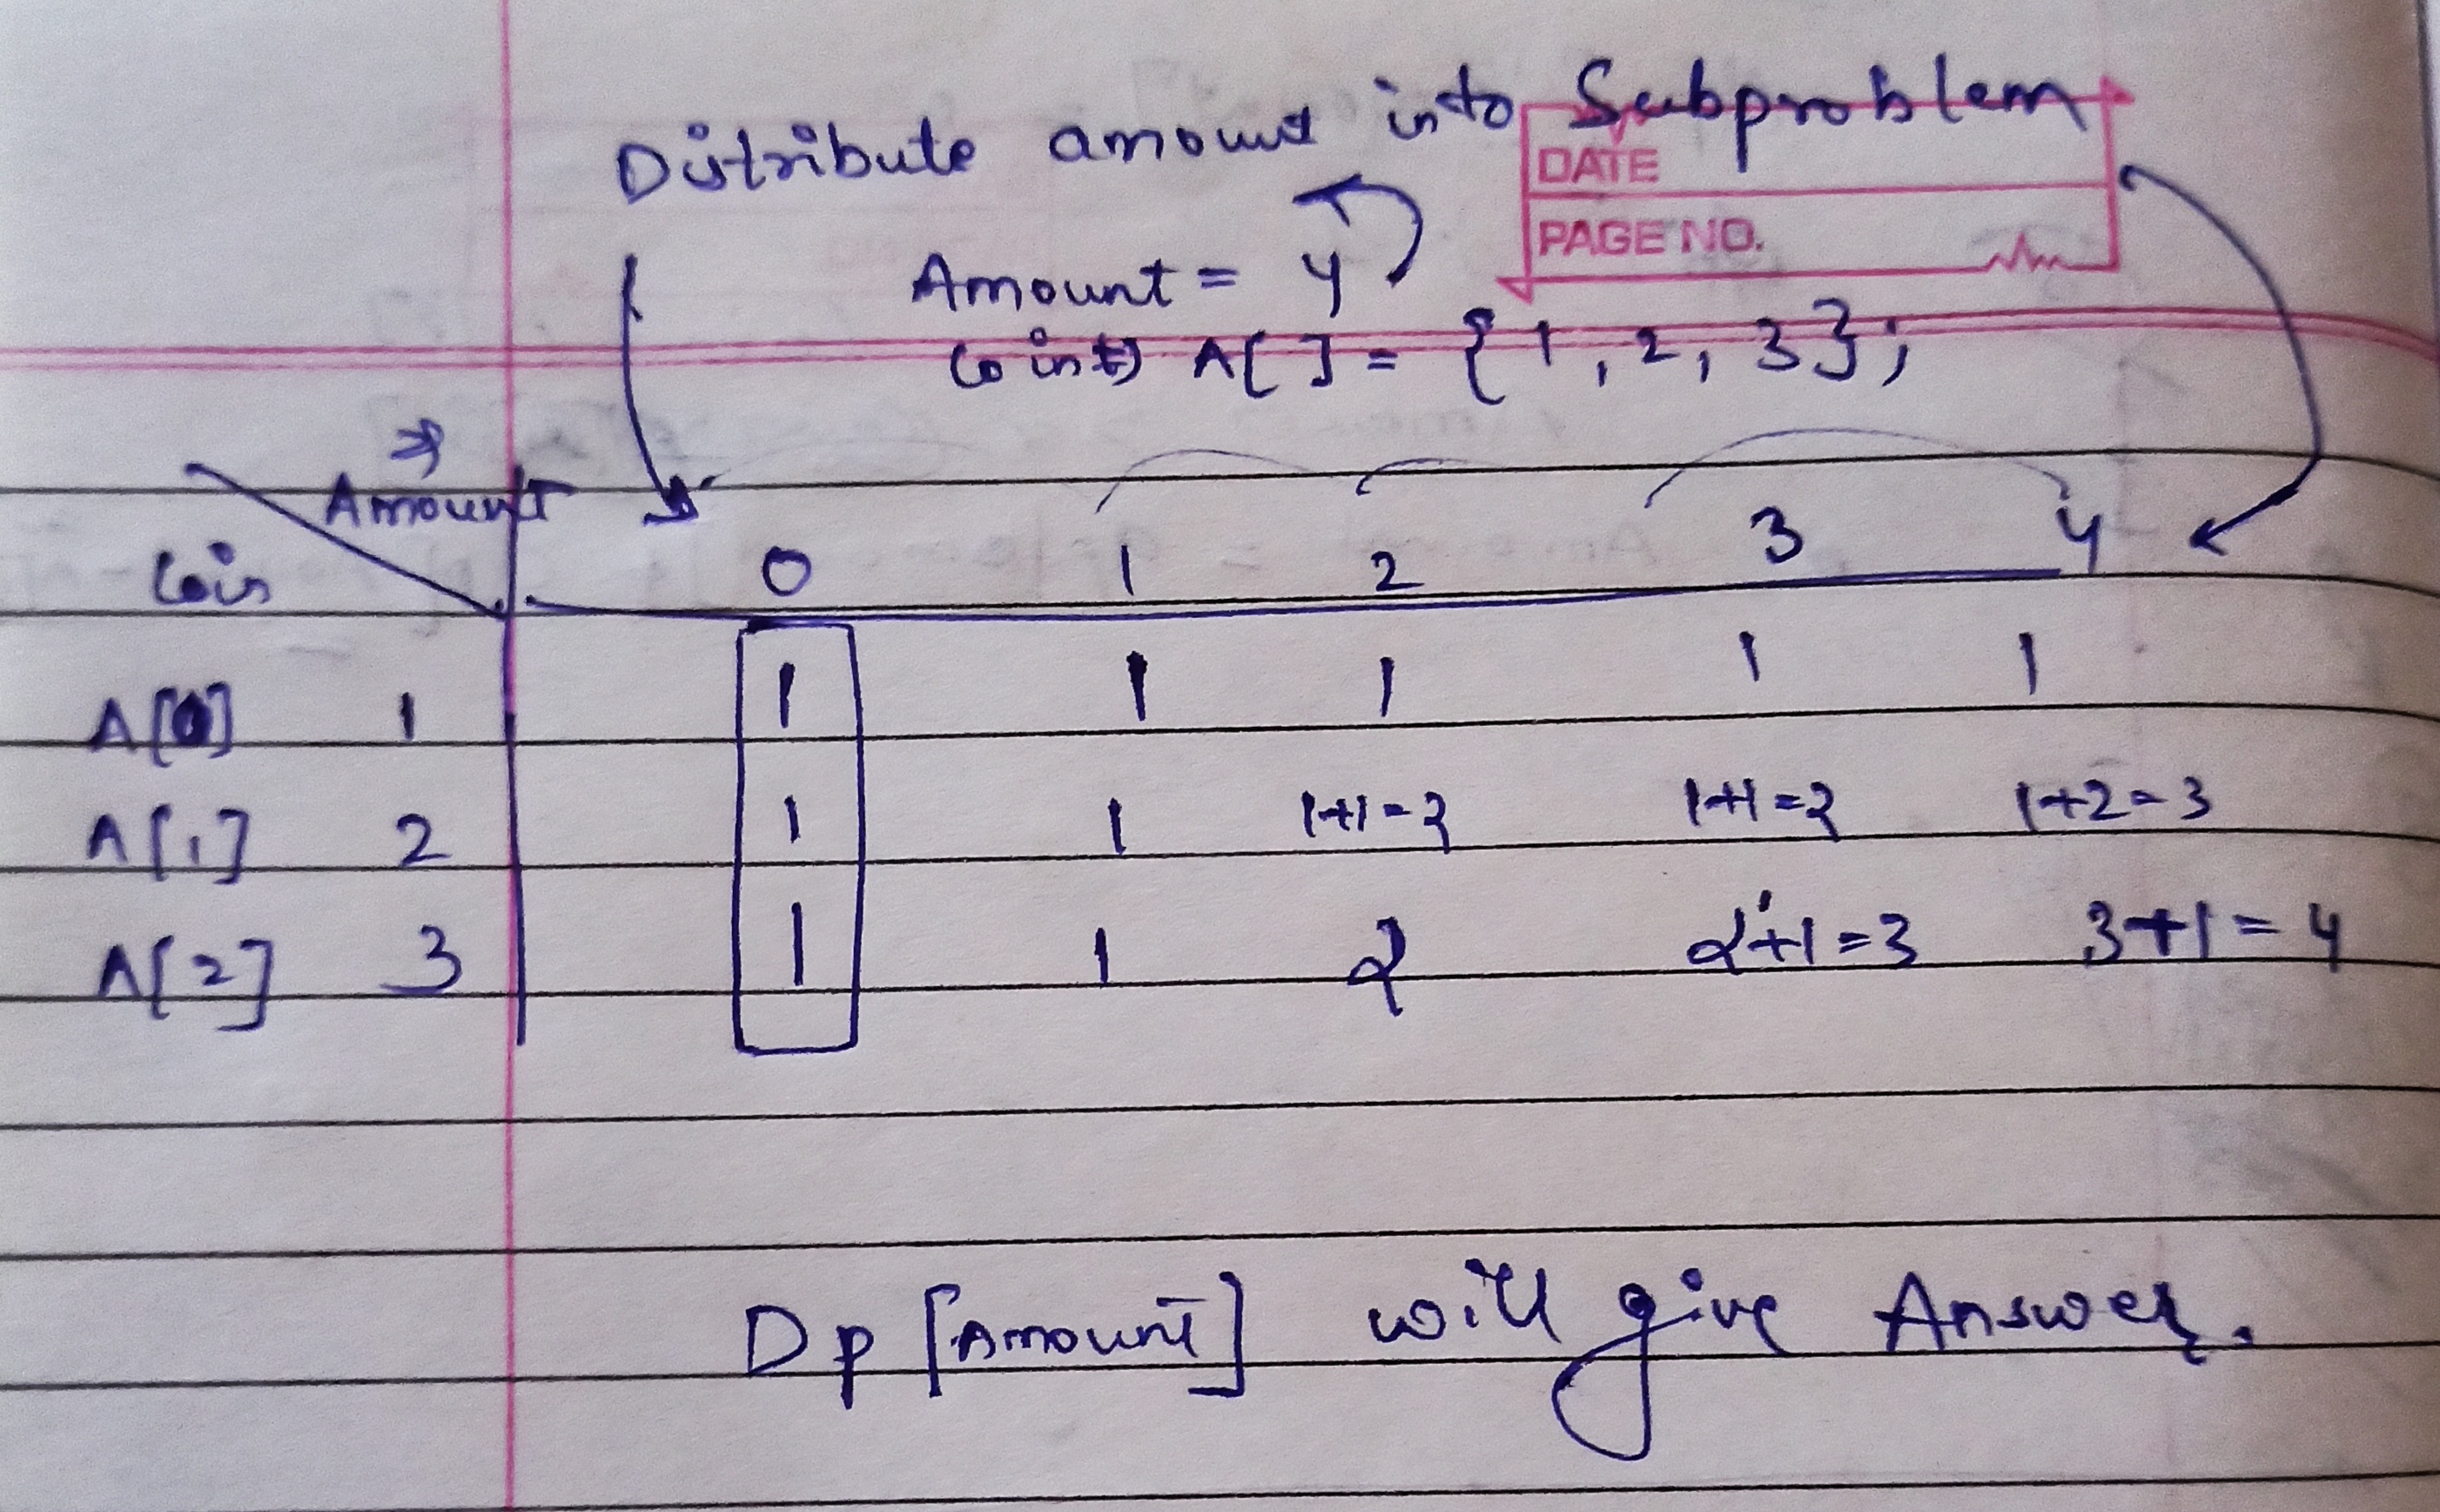 Distribute amount into Subproblem
DATE
PAGE NO.
Amount = 4
A[ ] = { 1, 2, 3 };
⇒
Amount
Coin 0 1 2 3 4
A[0] 1 1 1 1 1 1
A[1] 2 1 1 1+1=2 1+1=2 1+2=3
A[2] 3 1 1 2 2+1=3 3+1=4
Dp [Amount] will give Answer.